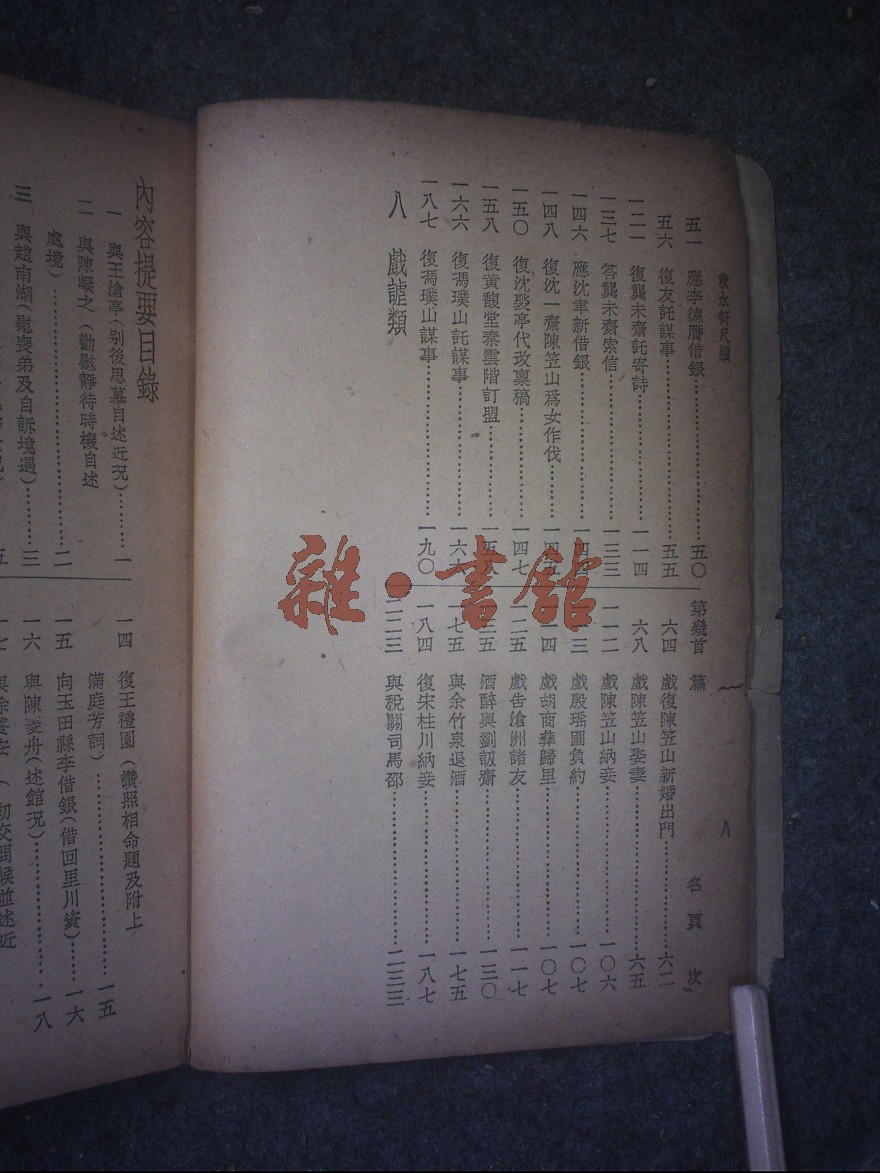 秋水軒尺牘
八
五一 應李德膺借銀 五〇
五六 復友託謀事 五五
一二一 復龔未齋託寄詩 一一四
一三七 答龔未齋索信 一三三
一四六 應沈聿新借銀
一四八 復沈一齋陳笠山爲女作伐
一五〇 復沈翼亭代改稟稿 一四七
一五八 復黄馥堂秦雲階訂盟
一六六 復馮璞山託謀事
一八七 復馮璞山謀事 一九〇
八 戲謔類
第幾首 篇名 頁次
六四 戲復陳笠山新婚出門 六二
六八 戲陳笠山娶妻 六五
一一二 戲陳笠山納妾 一〇六
戲殷瑶圃負約 一〇七
戲胡商彝歸里 一〇七
一二五 戲告滄洲諸友 一一七
酒醉與劉訒齋 一三〇
與余竹泉退酒 一七五
一八四 復宋桂川納妾 一八七
二二三 與稅關司馬邵 二三三
內容提要目錄
一 與王滄亭（別後思慕自述近況） 一
二 與陳嶸之（勸慰靜待時機自述
處境） 二
三 與趙南湖（慰喪弟及自訴境遇） 三
五
一四 復王禮圃（讚照相命題及附上
滿庭芳詞） 一五
一五 向玉田縣李借銀（借回里川資） 一六
一六 與陳菱舟（述館況） 一八
一七
初交問候並述近